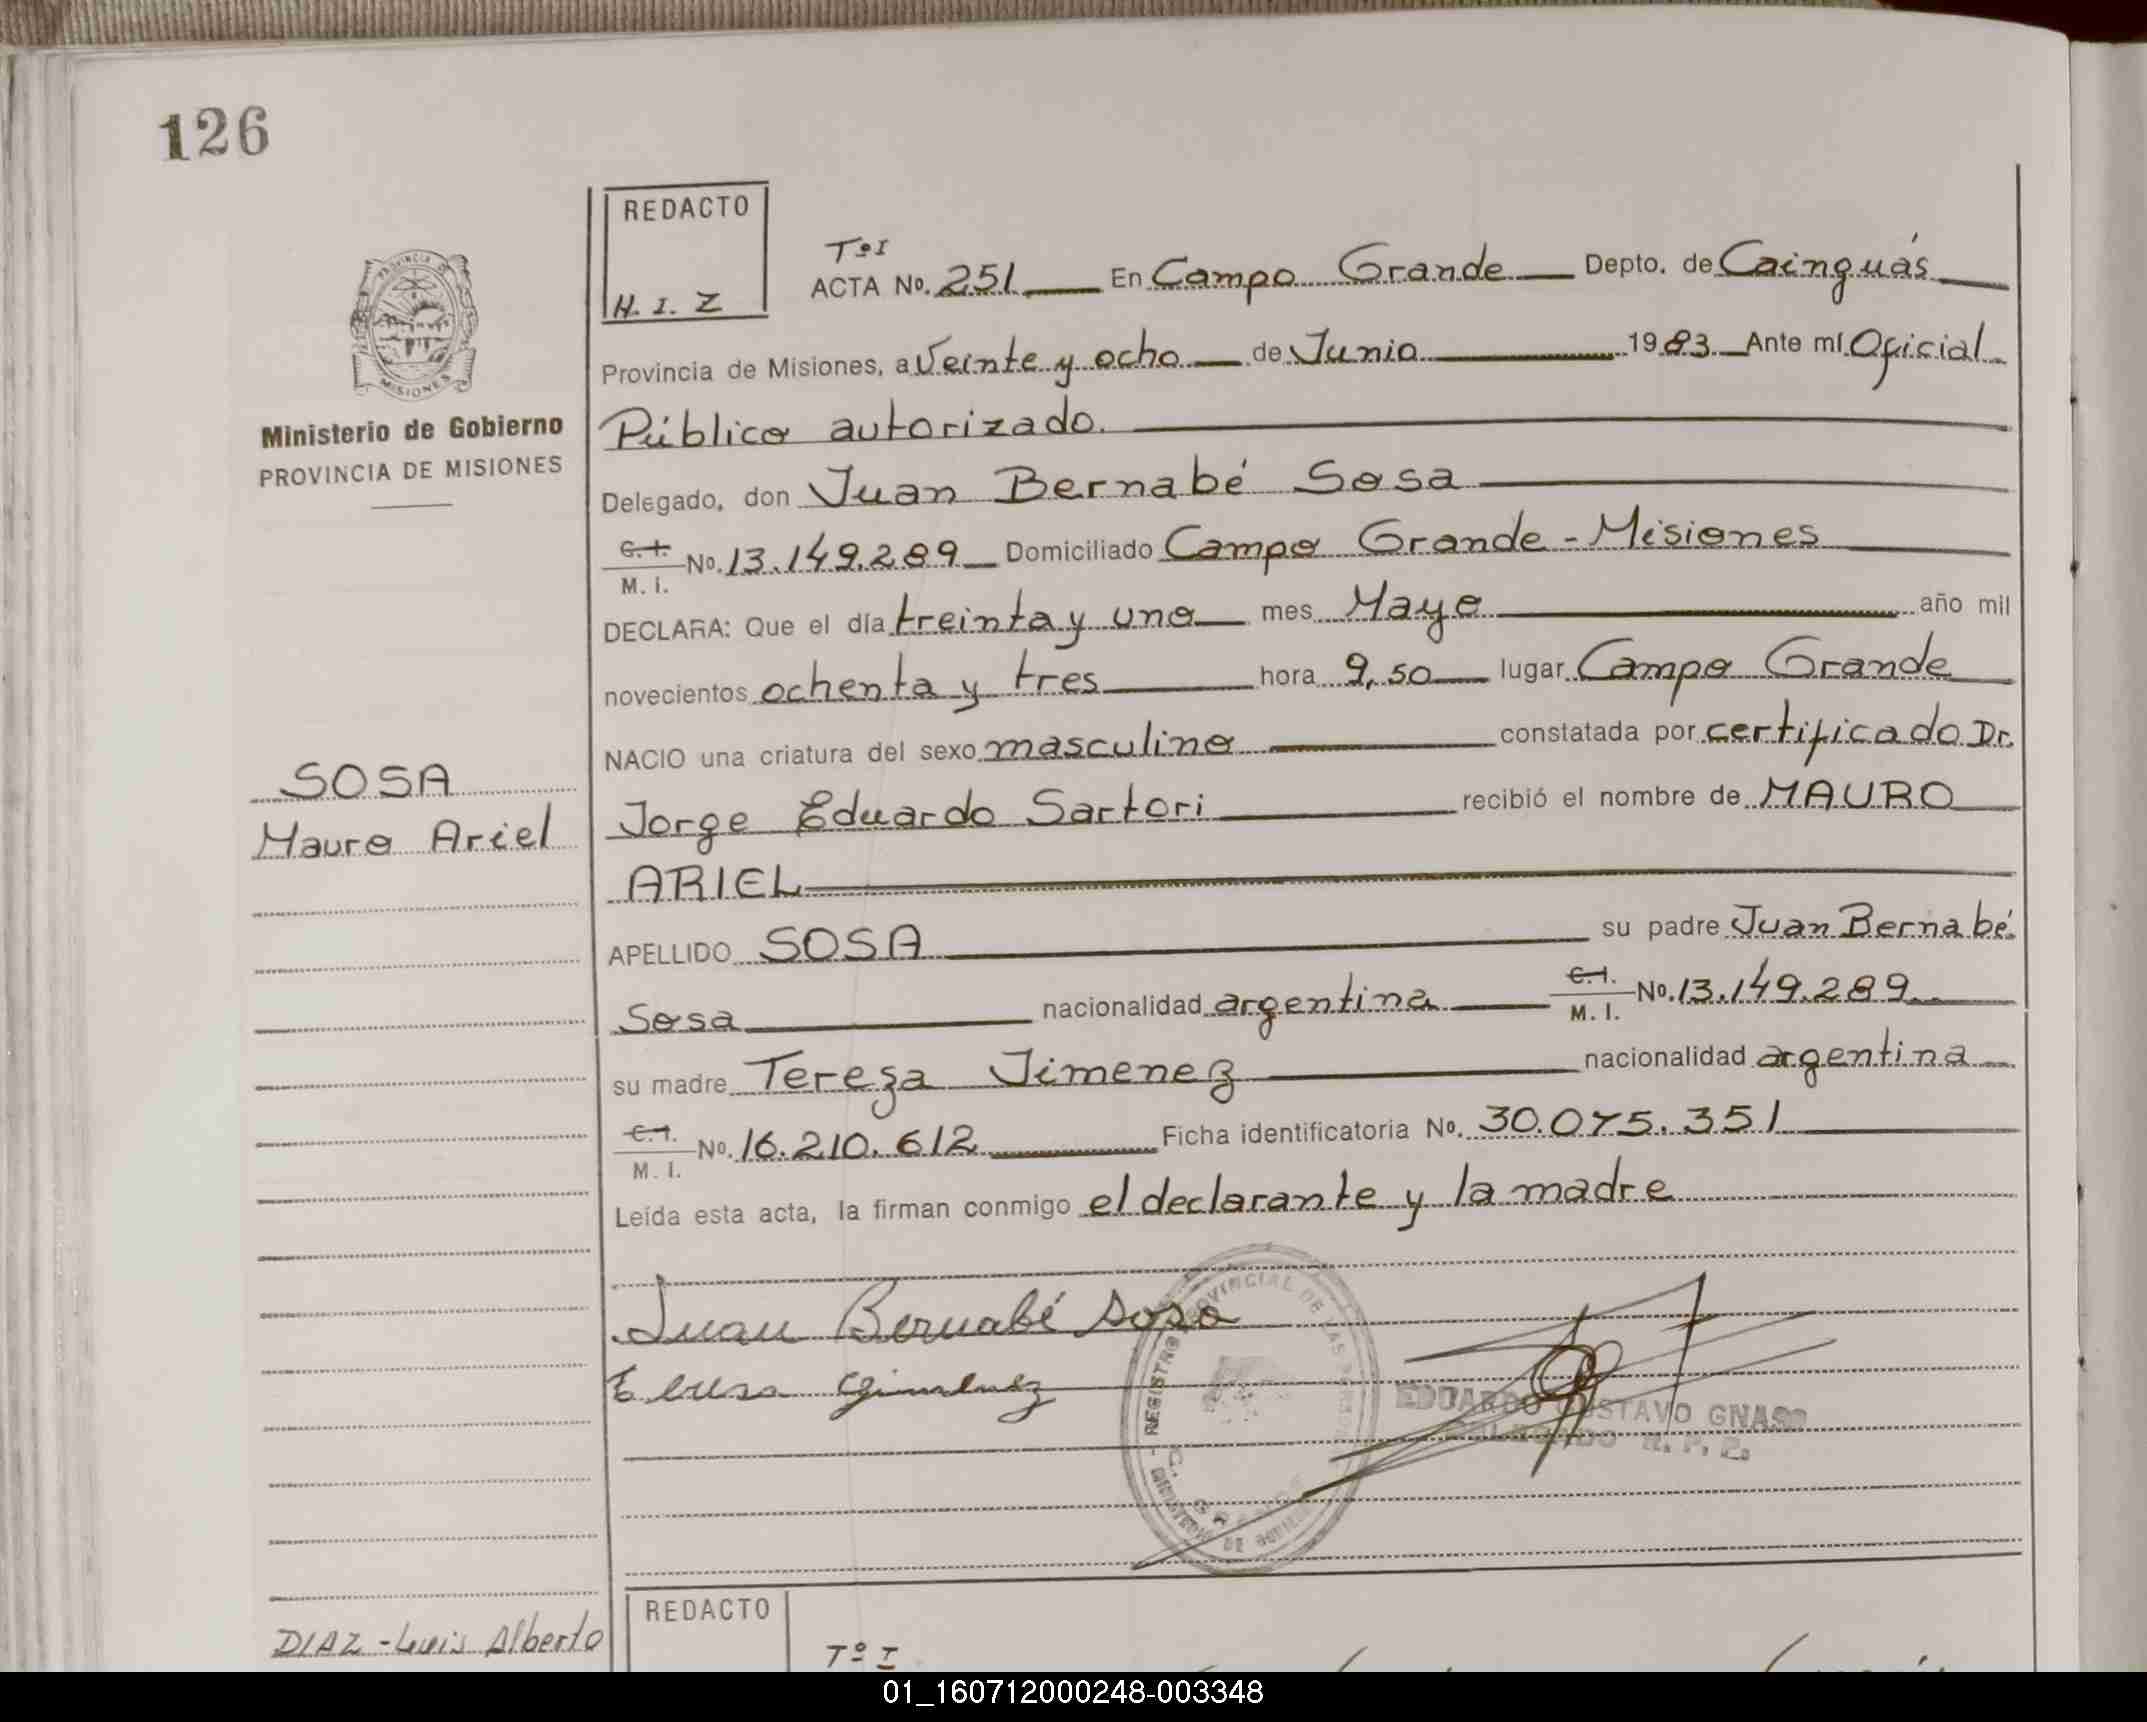 126
PROVINCIA DE
MISIONES
Ministerio de Gobierno
PROVINCIA DE MISIONES
SOSA
Mauro Ariel
REDACTO
H. I. Z
Tº I
ACTA Nº. 251 En Campo Grande Depto. de Cainguás
Provincia de Misiones, a Veinte y ocho de Junio 1983 Ante mí Oficial
Público autorizado.
Delegado, don Juan Bernabé Sosa
C. I.
M. I. Nº. 13.149.289 Domiciliado Campo Grande - Misiones
DECLARA: Que el día treinta y uno mes Mayo año mil
novecientos ochenta y tres hora 9,50 lugar Campo Grande
NACIO una criatura del sexo masculino constatada por certificado Dr.
Jorge Eduardo Sartori recibió el nombre de MAURO
ARIEL
APELLIDO SOSA su padre Juan Bernabé
Sosa nacionalidad argentina C. I. M. I. Nº. 13.149.289
su madre Tereza Jimenez nacionalidad argentina
C. I.
M. I. Nº. 16.210.612 Ficha identificatoria Nº. 30.075.351
Leída esta acta, la firman conmigo el declarante y la madre
Juan Bernabé Sosa
Gimenez
REGISTRO PROVINCIAL DE LAS
EDUARDO GUSTAVO GNASS
DELEGADO R. P. P.
DIAZ - Luis Alberto
REDACTO
Tº I
01_160712000248-003348